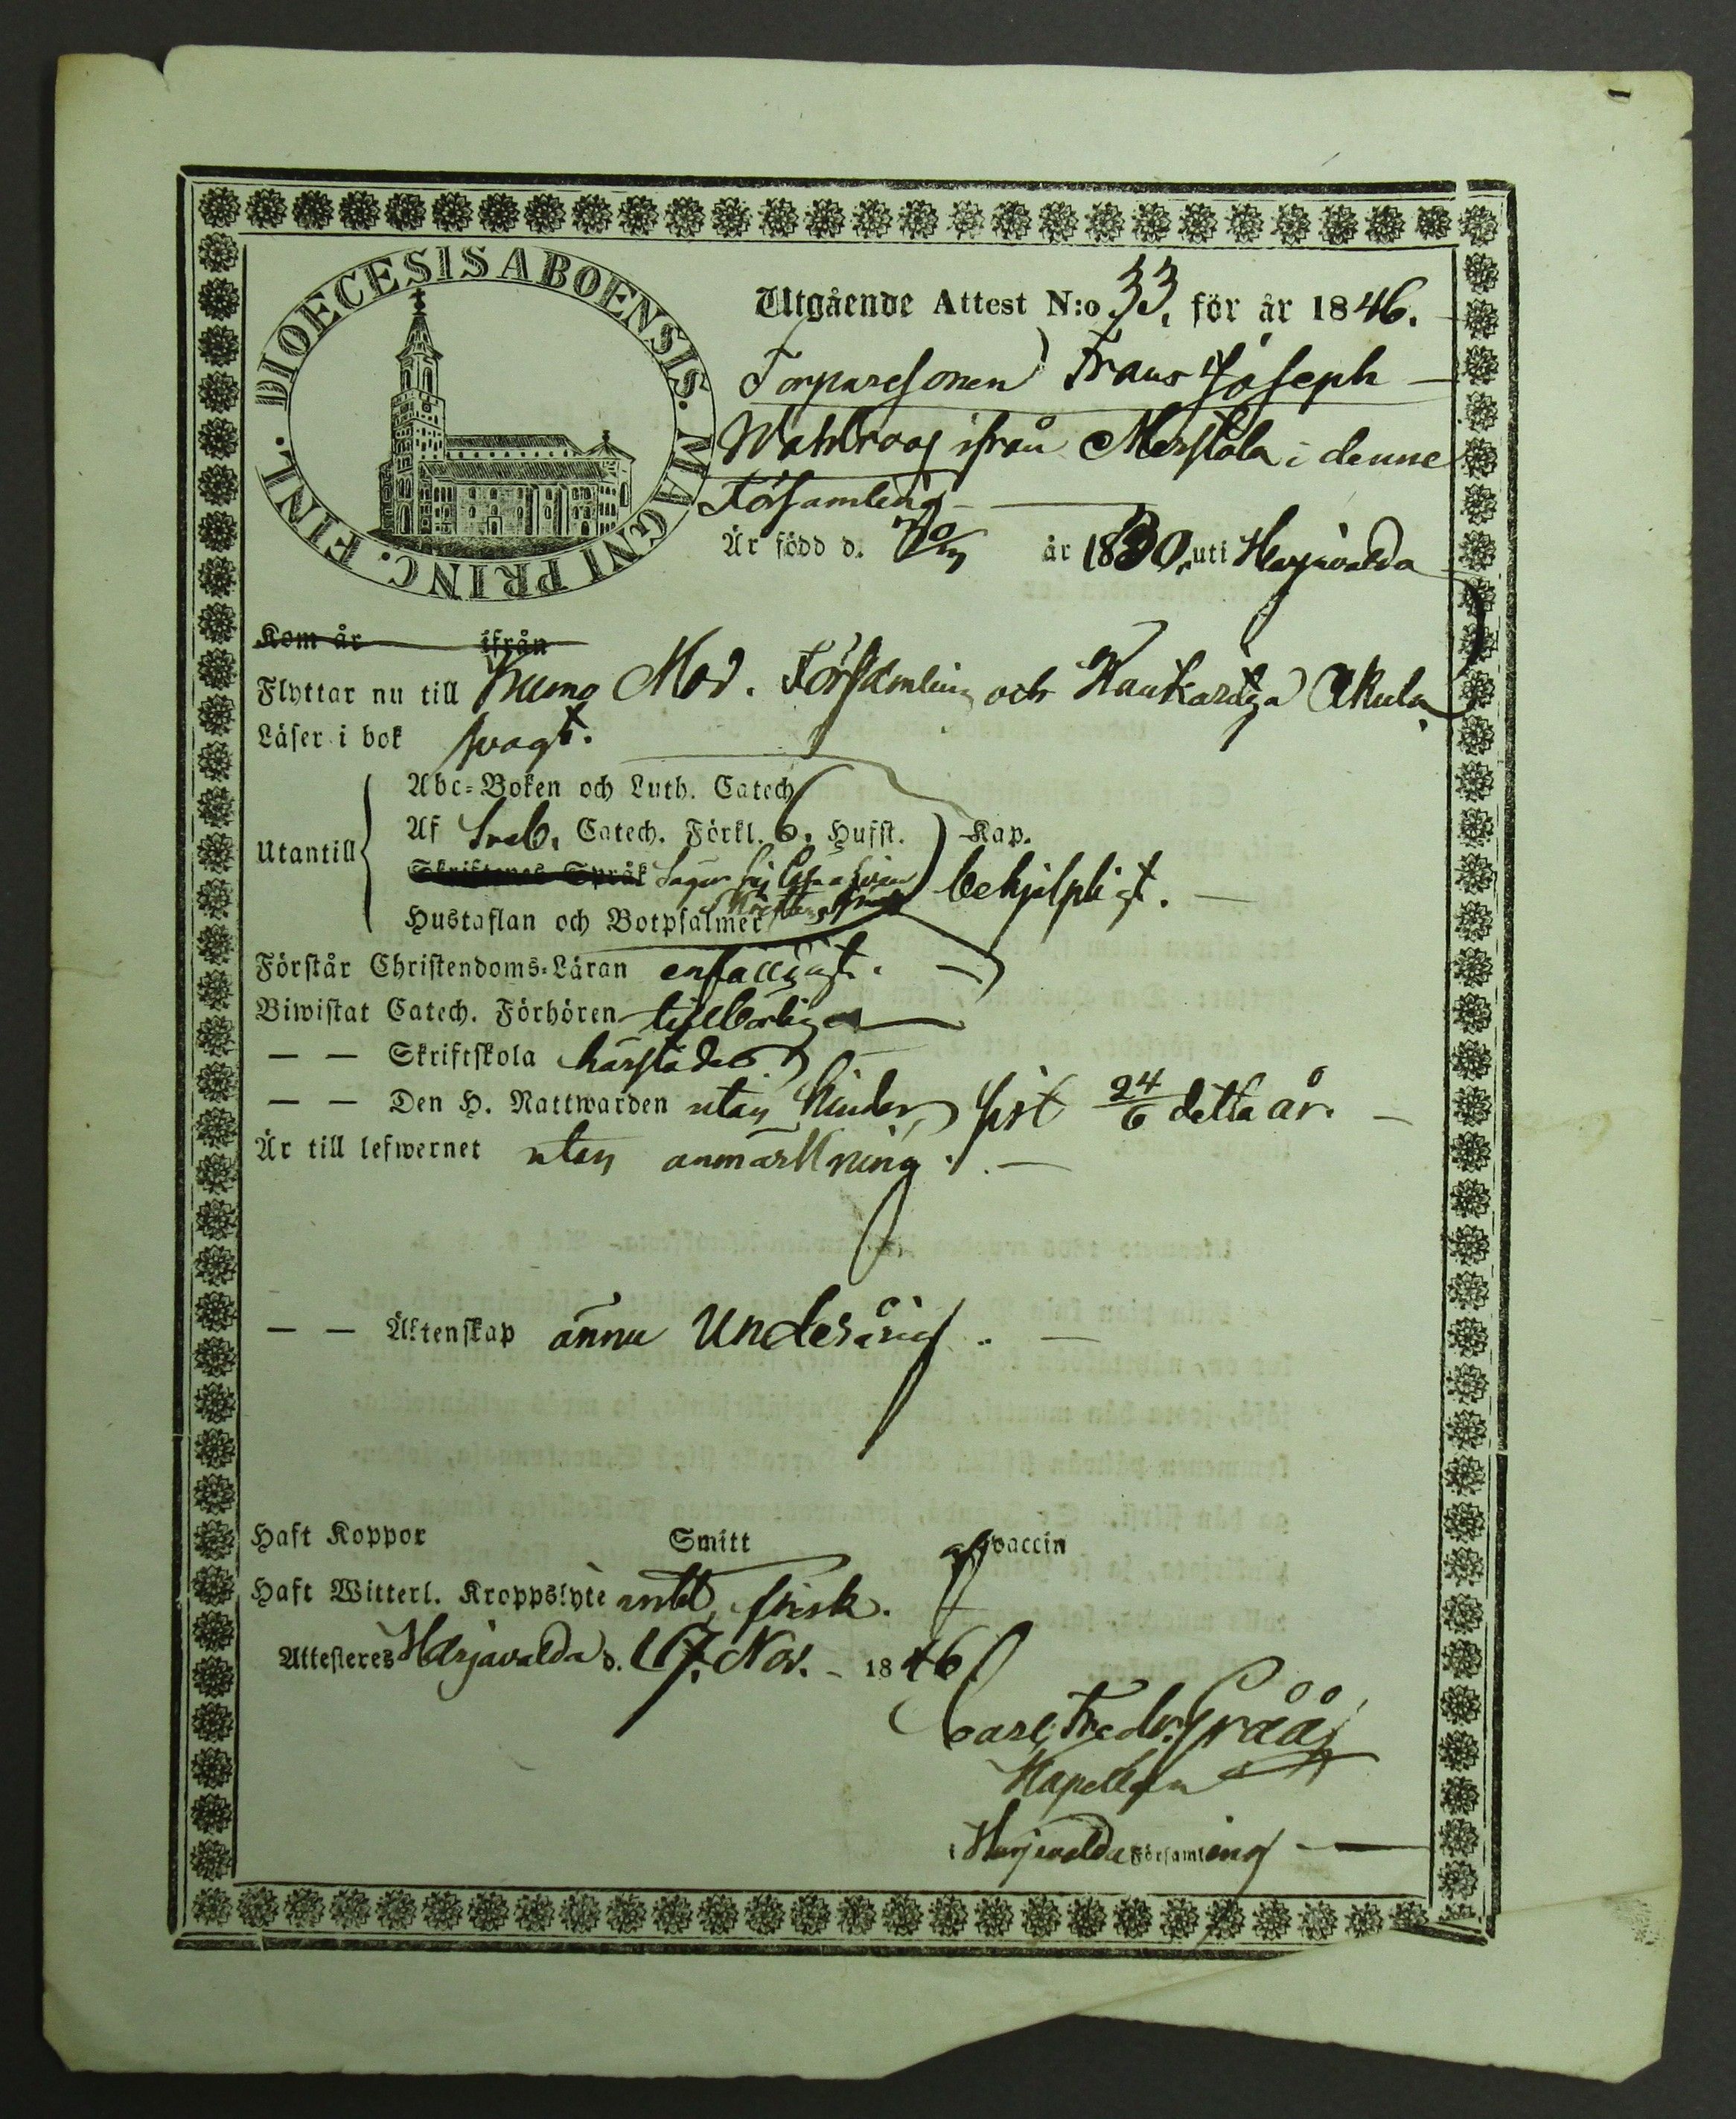 DIOECESIS ABOENSIS. MAGNI PRINC. FINL.
Utgående Attest N:o 33. för år 1846.
Torparesonen Frans Joseph
Wahlroos ifrån Merstola i denne
Församling
Är född d. år 1830. uti Harjavalda
Kom år ifrån
Flyttar nu till Kumo Mod. Församling och Kaukaritza Akula
Läser i bok svagt.
Utantill
Abc-Boken och Luth. Catech
Af Sveb. Catech. Förkl. 6. Hufst. Kap.
Skriftenes Språk Säger sig
Hustaflan och Botpsalmer behjelpligt.
Förstår Christendoms-Läran enfalligt.
Biwistat Catech. Förhören tillbörligen
— — Skriftskola härstädes
— — Den H. Nattwarden utan hinder, sist 24/6 detta år.
Är till lefwernet utan anmärkning.
— — Äktenskap ännu Underårig.
Haft Koppor Smitt af vaccin
Haft Witterl. Kroppslyte intet, frisk.
Attesteres Harjavalda d. 17. Nov. 1846
Carl Fredr. Gråå
Kapellan
i Harjavalda Församling